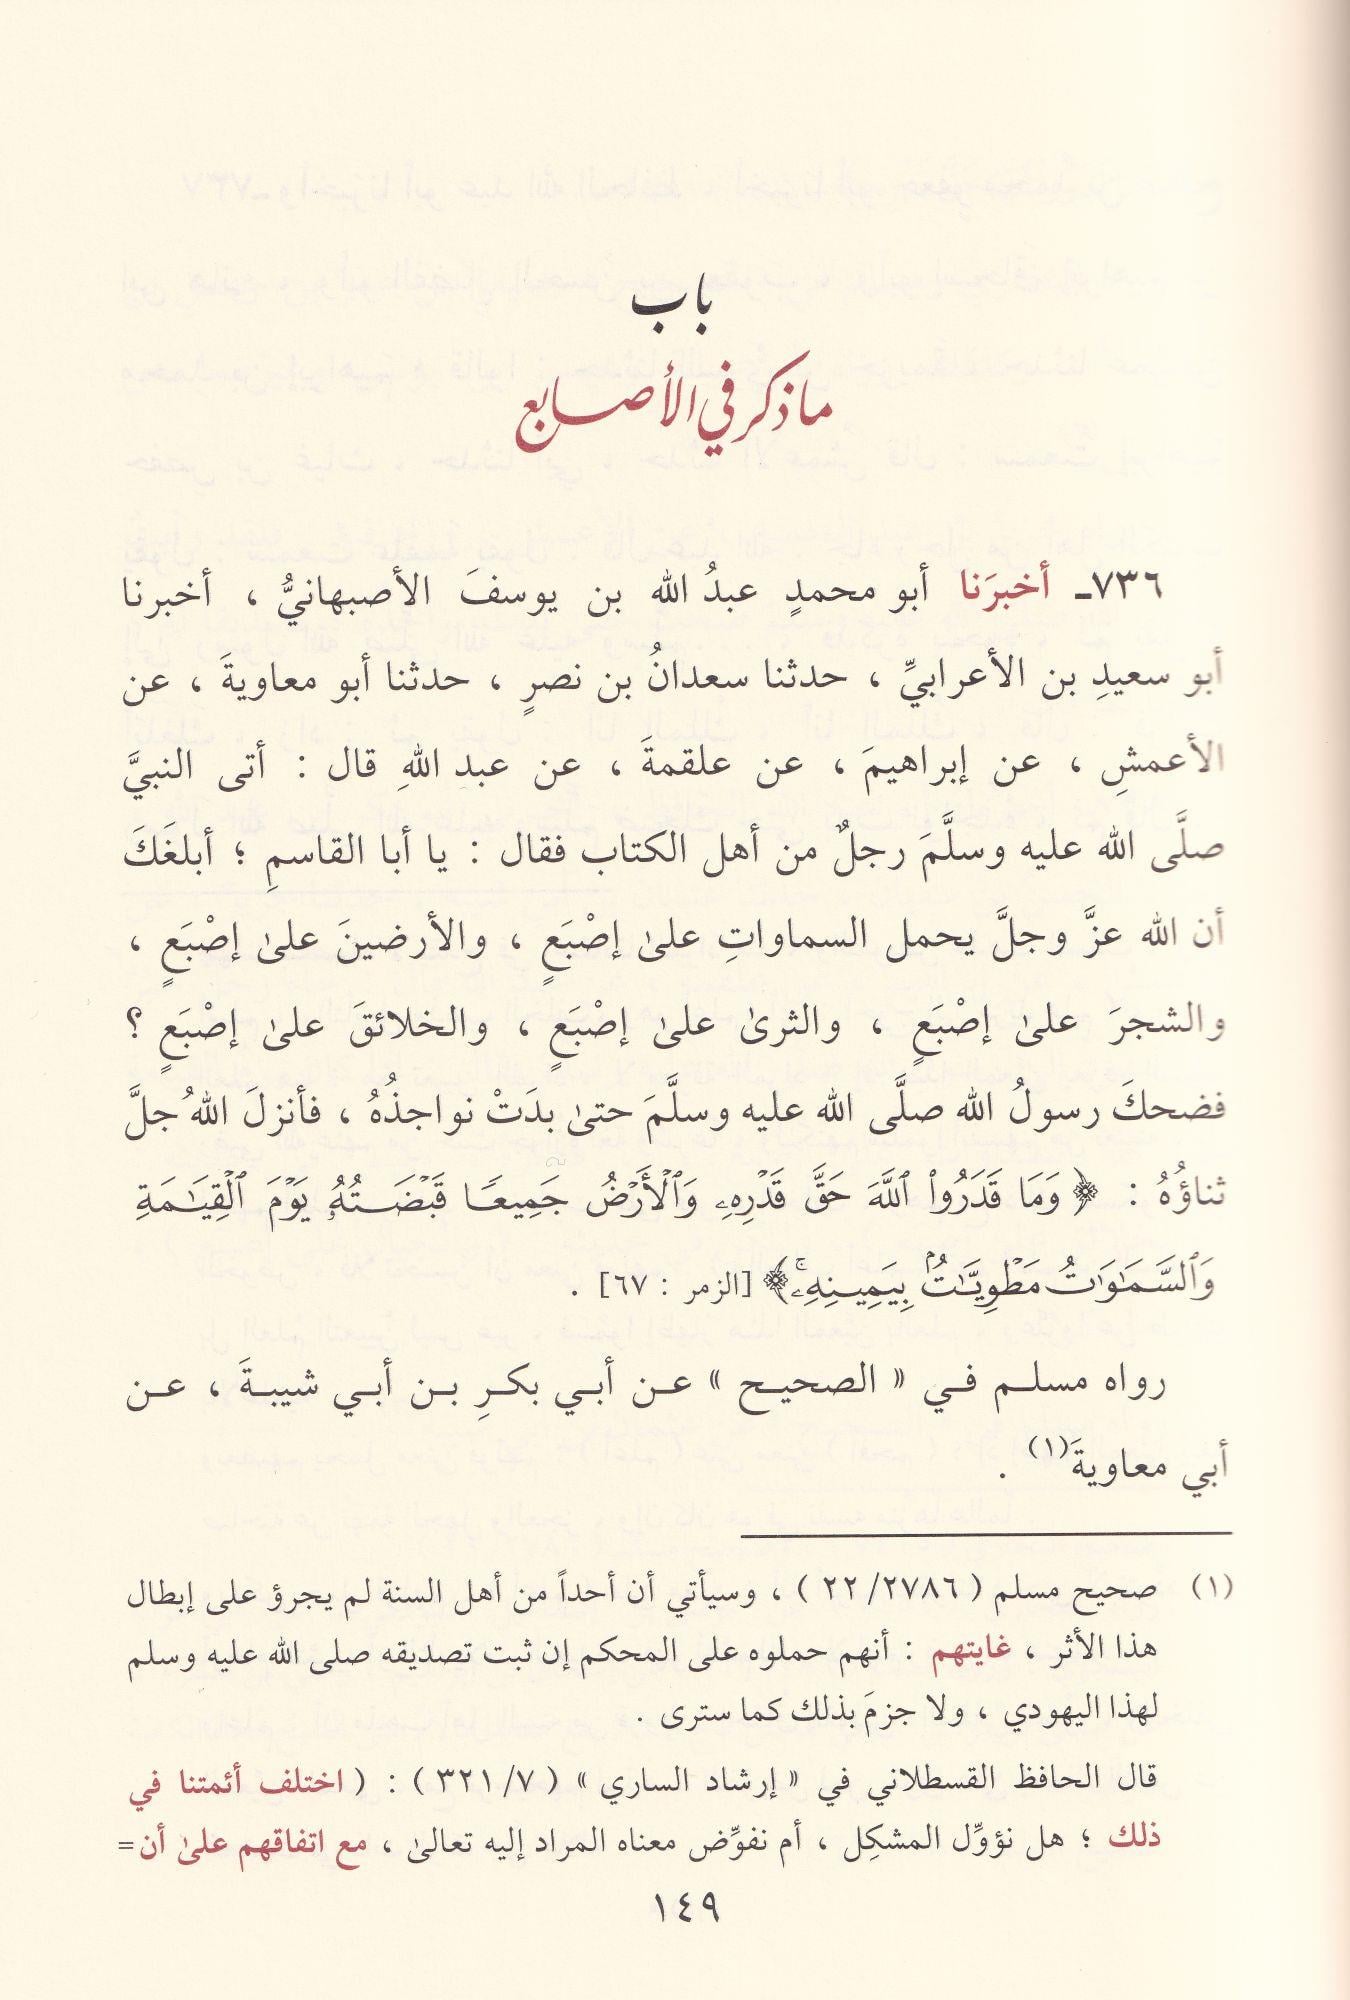 باب
ما ذكر في الأصابع
٧٣٦ـ أخبرَنا أبو محمدٍ عبدُ الله بن يوسفَ الأصبهانيُّ ، أخبرنا
أبو سعيدِ بن الأعرابيِّ ، حدثنا سعدانُ بن نصرٍ ، حدثنا أبو معاويةَ ، عن
الأعمشِ ، عن إبراهيمَ ، عن علقمةَ ، عن عبدِ اللهِ قال : أتى النبيَّ
صلَّى الله عليه وسلَّمَ رجلٌ من أهل الكتاب فقال : يا أبا القاسمِ ؛ أبلغَكَ
أن الله عزَّ وجلَّ يحمل السماواتِ علىٰ إصْبَعٍ ، والأرضينَ علىٰ إصْبَعٍ ،
والشجرَ علىٰ إصْبَعٍ ، والثرىٰ علىٰ إصْبَعٍ ، والخلائقَ علىٰ إصْبَعٍ ؟
فضحكَ رسولُ الله صلَّى الله عليه وسلَّمَ حتىٰ بدَتْ نواجذُهُ ، فأنزلَ اللهُ جلَّ
ثناؤُهُ : ﴿ وَمَا قَدَرُوا۟ ٱللَّهَ حَقَّ قَدْرِهِۦ وَٱلْأَرْضُ جَمِيعًا قَبْضَتُهُۥ يَوْمَ ٱلْقِيَٰمَةِ
وَٱلسَّمَٰوَٰتُ مَطْوِيَّٰتٌۢ بِيَمِينِهِۦۚ ﴾ [الزمر : ٦٧] .
رواه مسلم في « الصحيح » عن أبي بكرِ بن أبي شيبةَ ، عن
أبي معاويةَ(١) .
(١) صحيح مسلم ( ٢٢/٢٧٨٦ ) ، وسيأتي أن أحداً من أهل السنة لم يجرؤ على إبطال
هذا الأثر ، غايتهم : أنهم حملوه على المحكم إن ثبت تصديقه صلى الله عليه وسلم
لهذا اليهودي ، ولا جزمَ بذلك كما سترى .
قال الحافظ القسطلاني في « إرشاد الساري » ( ٣٢١/٧ ) : ( اختلف أئمتنا في
ذلك ؛ هل نؤوِّل المشكِل ، أم نفوِّض معناه المراد إليه تعالىٰ ، مع اتفاقهم علىٰ أن =
١٤٩